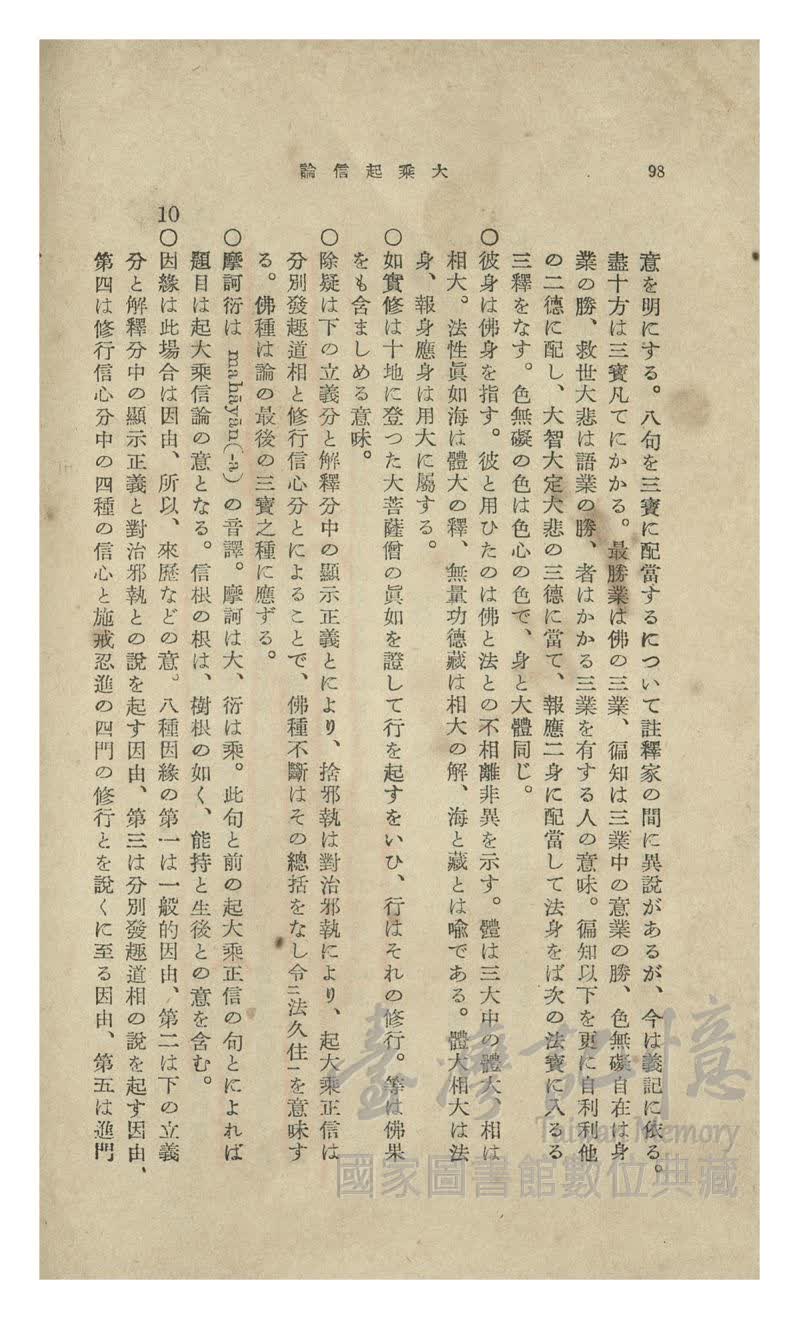 98
大乘起信論
意を明にする。八句を三寶に配當するについて註釋家の間に異說があるが、今は義記に依る。
盡十方は三寶凡てにかかる。最勝業は佛の三業、徧知は三業中の意業の勝、色無礙自在は身
業の勝、救世大悲は語業の勝、者はかかる三業を有する人の意味。徧知以下を更に自利利他
の二德に配し、大智大定大悲の三德に當て、報應二身に配當して法身をば次の法寶に入るる
三釋をなす。色無礙の色は色心の色で、身と大體同じ。
〇彼身は佛身を指す。彼と用ひたのは佛と法との不相離非異を示す。體は三大中の體大、相は
相大。法性眞如海は體大の釋、無量功德藏は相大の解、海と藏とは喩である。體大相大は法
身、報身應身は用大に屬する。
〇如實修は十地に登つた大菩薩僧の眞如を證して行を起すをいひ、行はそれの修行。等は佛果
をも含ましめる意味。
〇除疑は下の立義分と解釋分中の顯示正義とにより、捨邪執は對治邪執により、起大乘正信は
分別發趣道相と修行信心分とによることで、佛種不斷はその總括をなし令㆓法久住㆒を意味す
る。佛種は論の最後の三寶之種に應ずる。
〇摩訶衍は mahāyān(-a) の音譯。摩訶は大、衍は乘。此句と前の起大乘正信の句とによれば
題目は起大乘信論の意となる。信根の根は、樹根の如く、能持と生後との意を含む。
10〇因緣は此場合は因由、所以、來歷などの意。八種因緣の第一は一般的因由、第二は下の立義
分と解釋分中の顯示正義と對治邪執との說を起す因由、第三は分別發趣道相の說を起す因由、
第四は修行信心分中の四種の信心と施戒忍進の四門の修行とを說くに至る因由、第五は進門
臺灣記憶
Taiwan Memory
國家圖書館數位典藏